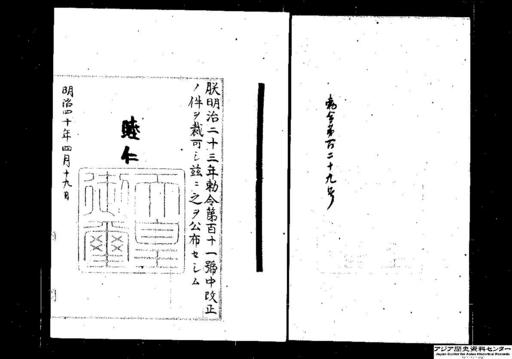 勅令第百二十九号
朕明治二十三年勅令第百十一號中改正
ノ件ヲ裁可シ茲ニ之ヲ公布セシム
睦仁
天皇
御璽
明治四十年四月十九日
アジア歴史資料センター
Japan Center for Asian Historical Records